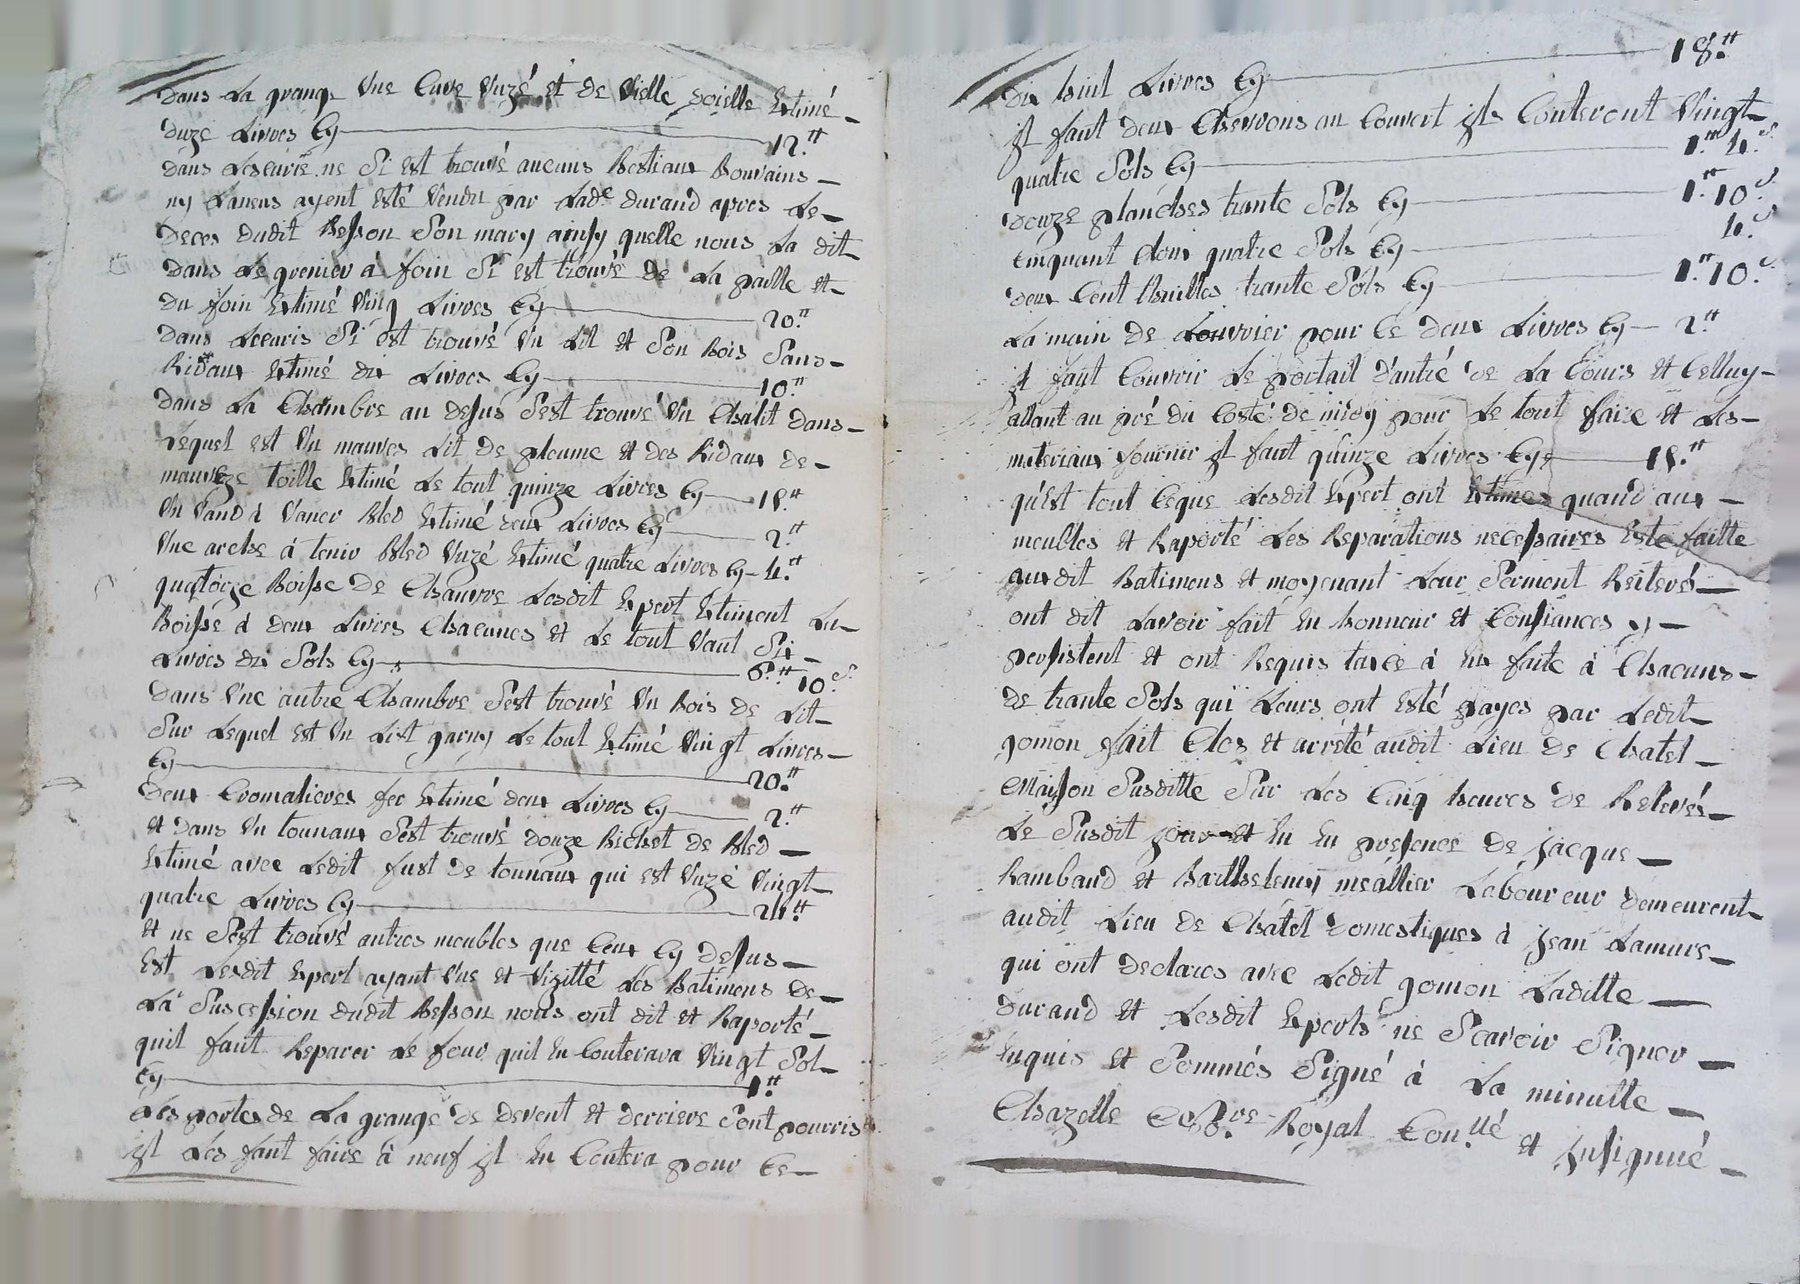 dans La grange Une Cuve Vuzé et de Vielle poielle Estimé
duze Livres Cy 12.tt
dans Lescurie ne Si est trouvé aucuns Bestiaux Bouvains
ny Laneus ayent esté Vendu par Lad.e durand apres Le
deces dudit Besson Son mary ainsy quelle nous La dit
dans Le grenier a foin Si est trouvé de La paille et
du foin Estimé Ving Livres Cy 20.tt
dans Lecuris Si est trouvé Vn Lit et Son Bois Sans
Ridaux Estimé dix Livres Cy 10.tt
dans La Chambre au desus Sest trouvé Vn Chalit dans
Lequel est Vn mauves Lit de pleume et des Ridaux de
mauveze toille Estimé Le tout quinze Livres Cy 15.tt
Vn Vand à Vaner Bled Estimé deux Livres Cy 2.tt
Vne arche à tenir Bled Vuzé Estimé quatre Livres Cy 4.tt
quatorze Boisse de Chanvre Lesdit Expert Estiment La
Boisse à deux Livres Chacunes et Le tout Vaut Six
Livres dix Sols Cy 6.tt 10.s
dans Vne autre Chambre Sest trouvé Vn Bois de Lit
Sur Lequel est Vn Lit garny Le tout Estimé Vingt Livres
Cy 20.tt
deux Cromalieres fer Estimé deux Livres Cy 2.tt
et dans Vn tounaux Sest trouvé douze Bichet de Bled
Estimé avec Ledit fust de tounaux qui est Vuzé Vingt
quatre Livres Cy 24.tt
et ne Sest trouvé autres meubles que Ceux Cy desus
Est Lesdit Expert ayant Vue et Vizitté Les Batimens de
La Sucession dudit Besson nous ont dit et Raporté
quil faut Reparer Le four quil En Couterara Vingt Sol
Cy 1.tt
Les portes de La grange de devent et derriere Sont pourris
jl Les faut faire à neuf jl En Coutera pour Ce
dix huit Livres Cy 18.tt
jl faut deux Chevrons au Couvert jls Conteront Vingt
quatre Sols Cy 1.tt 4.s
douze planches trante Sols Cy 1.tt 10.s
Cinquant Clour quatre Sols Cy 4.s
deux Cent thuilles trante Sols Cy 1.tt 10.s
La main de Louvrier pour Ce deux Livres Cy 2.tt
jl faut Couvrir Le portail d'antré de La Cours et Celluy
allant au pré du Costé de midy pour Le tout faire et Les
materiaux fournir jl faut quinze Livres Cy 15.tt
qu'est tout Ceque Lesdit Expert ont Estimes quand aux
meubles et Raporté Les Reparations necessaires Esté faitte
auxdit Batimens et moyenant Leur Serment Reiteré
ont dit Lavoir fait En honneur et Consiances y
persistent et ont Requis taxe à Eux faite à Chacuns
de trante Sols qui Leurs ont Esté payes par Ledit
gomon fait Clos et arrété audit Lieu de Chatel
Maison Susditte Sur Les Cinq heures de Relevés
Le Susdit jour et En En presence de jacque
Rambaud et Barthelemy meallier Laboureur demeurent
audit Lieu de Chatel domestiques à jean Lamure
qui ont declares avec Ledit gomon Laditte
durand et Lesdit Experts ne Scavoir Signer
Enquis et Sommés Signé à La minutte
Chazelle Royal Con.llé et jnsignué